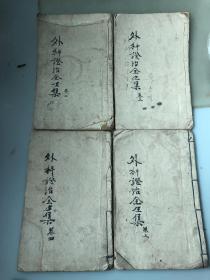 外科證治全生集 卷一
外科證治全生集
外科證治全生集 卷四
外科證治全生集